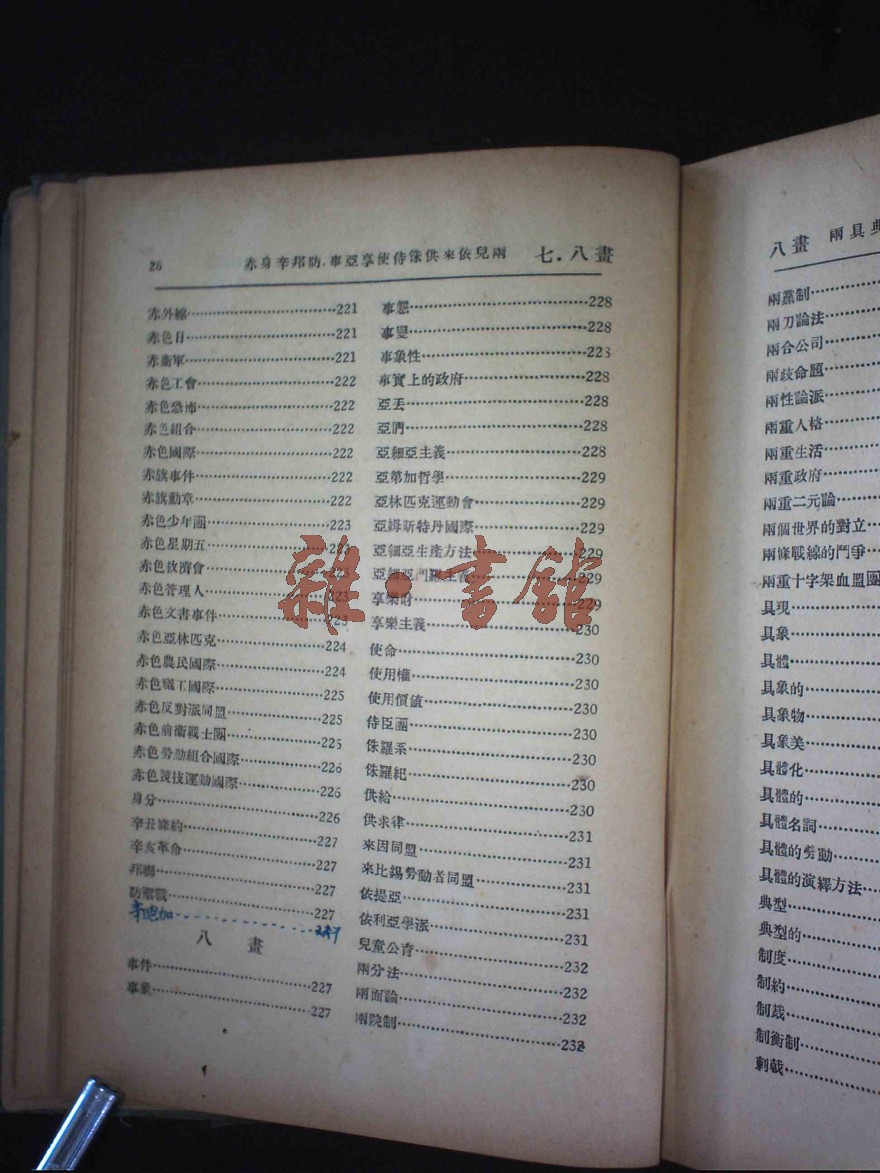 26 赤身辛邦防.事亞享使侍侏供來依兒兩 七.八畫
赤外線 221
赤色日 221
赤衞軍 221
赤色工會 222
赤色恐怖 222
赤色組合 222
赤色國際 222
赤旗事件 222
赤旗勳章 222
赤色少年團 223
赤色星期五 223
赤色救濟會 223
赤色管理人 223
赤色文書事件 223
赤色亞林匹克 224
赤色農民國際 224
赤色職工國際 225
赤色反對派同盟 225
赤色前衞戰士團 225
赤色勞動組合國際 226
赤色競技運動國際 226
身分 226
辛丑條約 227
辛亥革命 227
邦聯 227
防禦戰 227
八 畫
事件 227
事象 227
事態 228
事變 228
事象性 228
事實上的政府 228
亞丟 228
亞們 228
亞細亞主義 228
亞第加哲學 229
亞林匹克運動會 229
亞姆斯特丹國際 229
亞細亞生產方法 229
亞細亞門羅主義 229
享樂財 229
享樂主義 230
使命 230
使用權 230
使用價値 230
侍臣團 230
侏羅系 230
侏羅紀 230
供給 230
供求律 231
來因同盟 231
來比錫勞動者同盟 231
依提亞 231
依利亞學派 231
兒童公育 232
兩分法 232
兩面論 232
兩院制 232
雜·書館
八畫 兩具典
兩黨制
兩刀論法
兩合公司
兩歧命題
兩性論派
兩重人格
兩重生活
兩重政府
兩重二元論
兩個世界的對立
兩條戰線的鬥爭
兩重十字架血盟團
具現
具象
具體
具象的
具象物
具象美
具體化
具體的
具體名詞
具體的勞動
具體的演繹方法
典型
典型的
制度
制約
制裁
制衡制
刺戟